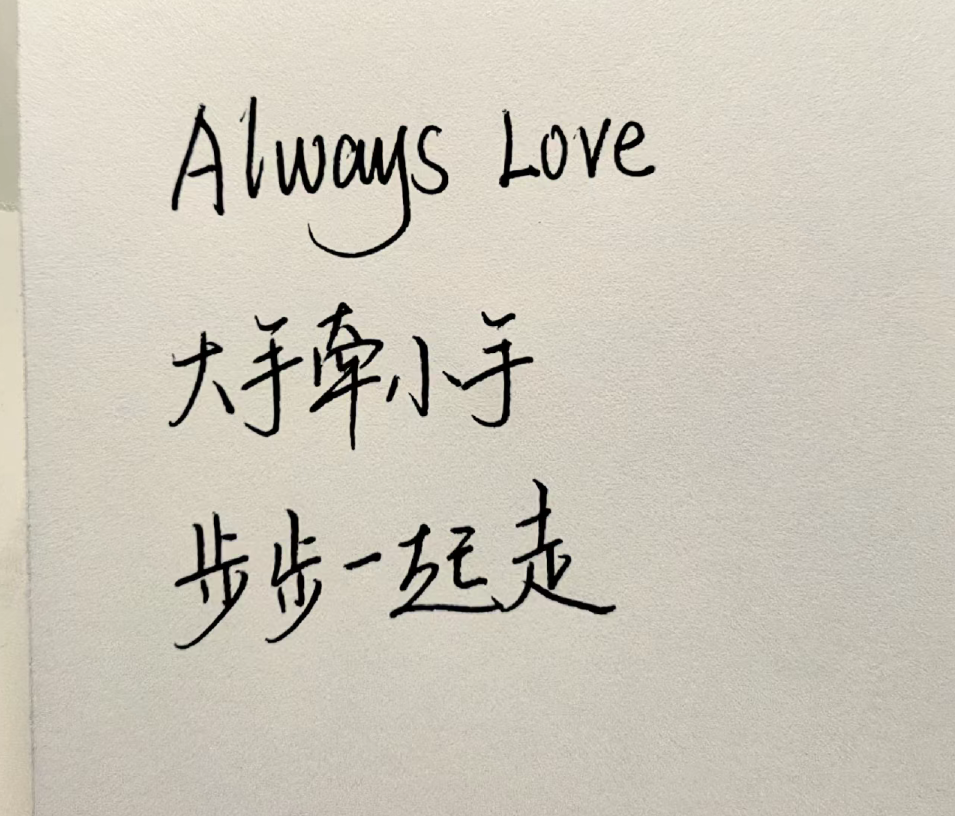 Always Love
大手牵小手
步步一起走